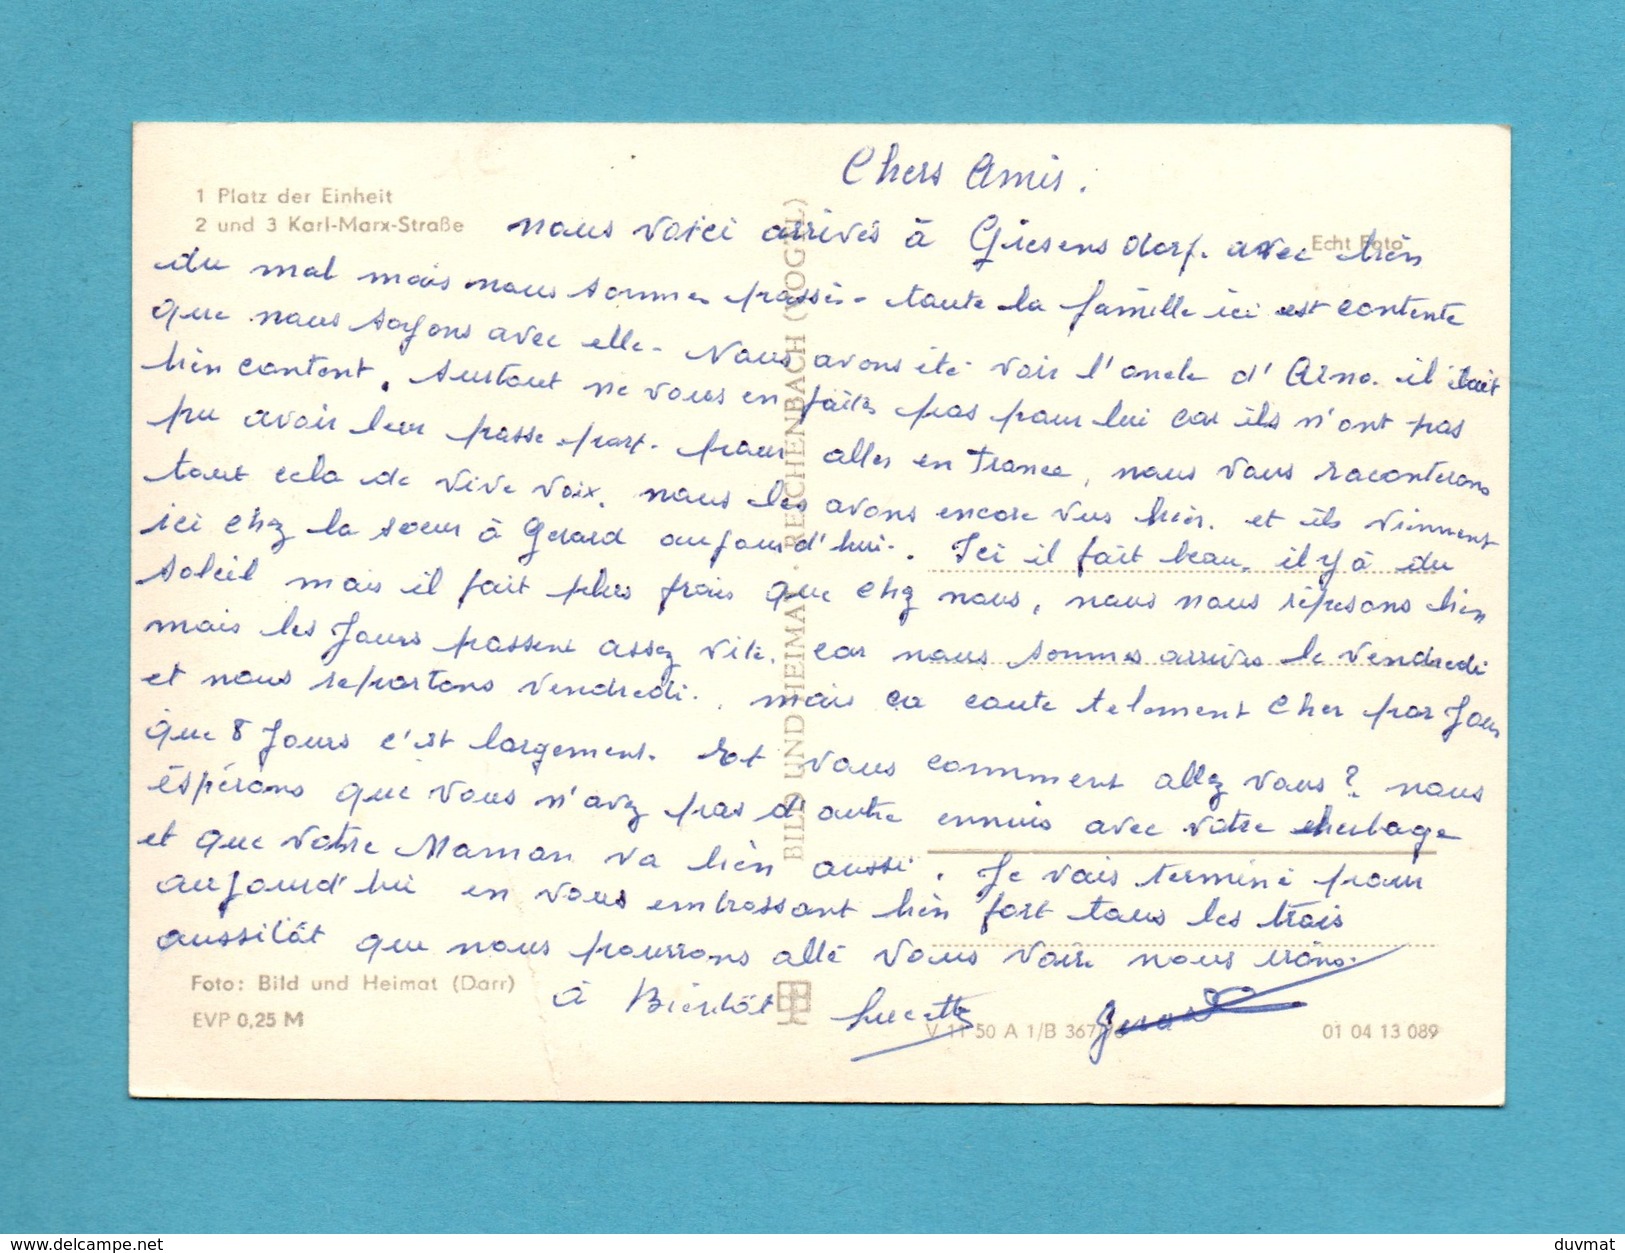 1 Platz der Einheit
2 und 3 Karl-Marx-Straße
Echt Foto
Chers Amis.
nous voici arrivés à Giesensdorf. avec bién
du mal mais nous sommes passés - toute la famille ici est contente
que nous soyons avec elle - Nous avons été voir l'oncle d'Arno. il était
bién content. surtout ne vous en faites pas pour lui car ils n'ont pas
pu avoir leur passe-port. pour aller en France, nous vous raconterons
tout cela de vive voix. nous les avons encore vus hièr. et ils viennent
ici chez la soeur à Gerard aujourd'hui. Ici il fait beau. il y à du
soleil mais il fait plus frais que chez nous, nous nous réposons bien
mais les Jours passent assez vite. car nous sommes arrivés le Vendredi
et nous repartons Vendredi. mais ça coute telement cher par Jour
que 8 Jours c'est largement. Et vous comment allez vous? nous
éspérons que vous n'avez pas d'autre ennuis avec votre
et que Votre Maman va bién aussi. Je vais terminé pour
aujourd'hui en vous embrassant bién fort tous les trois
aussitôt que nous pourrons allé vous voire nous irons.
à Bientôt Lucette Gerard
Foto: Bild und Heimat (Darr)
EVP 0,25 M
BILD UND HEIMAT · REICHENBACH (VOGTL)
V 11 50 A 1/B 367/76
01 04 13 089
delcampe.net
duvmat